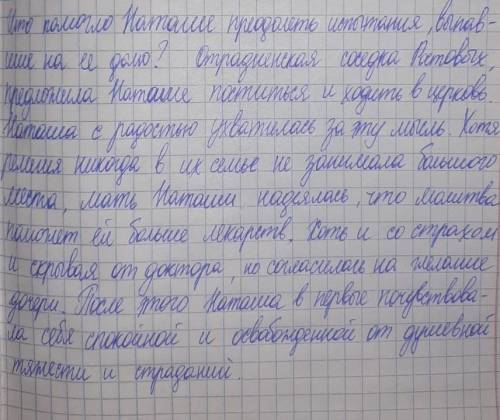 Что помогло Наташе преодолеть испытания, выпав-
шие на её долю? Отрадненская соседка Ростовых,
предложила Наташе поститься и ходить в церковь
Наташа с радостью ухватилась за эту мысль. Хотя
религия никогда в их семье не занимала большого
места, мать Наташи надеялась, что молитва
поможет ей больше лекарств. Хоть и со страхом
и скрывая от доктора, но согласилась на желание
дочери. После этого Наташа в первые почувствова-
ла себя спокойной и освобожденной от душевной
тяжести и страданий.